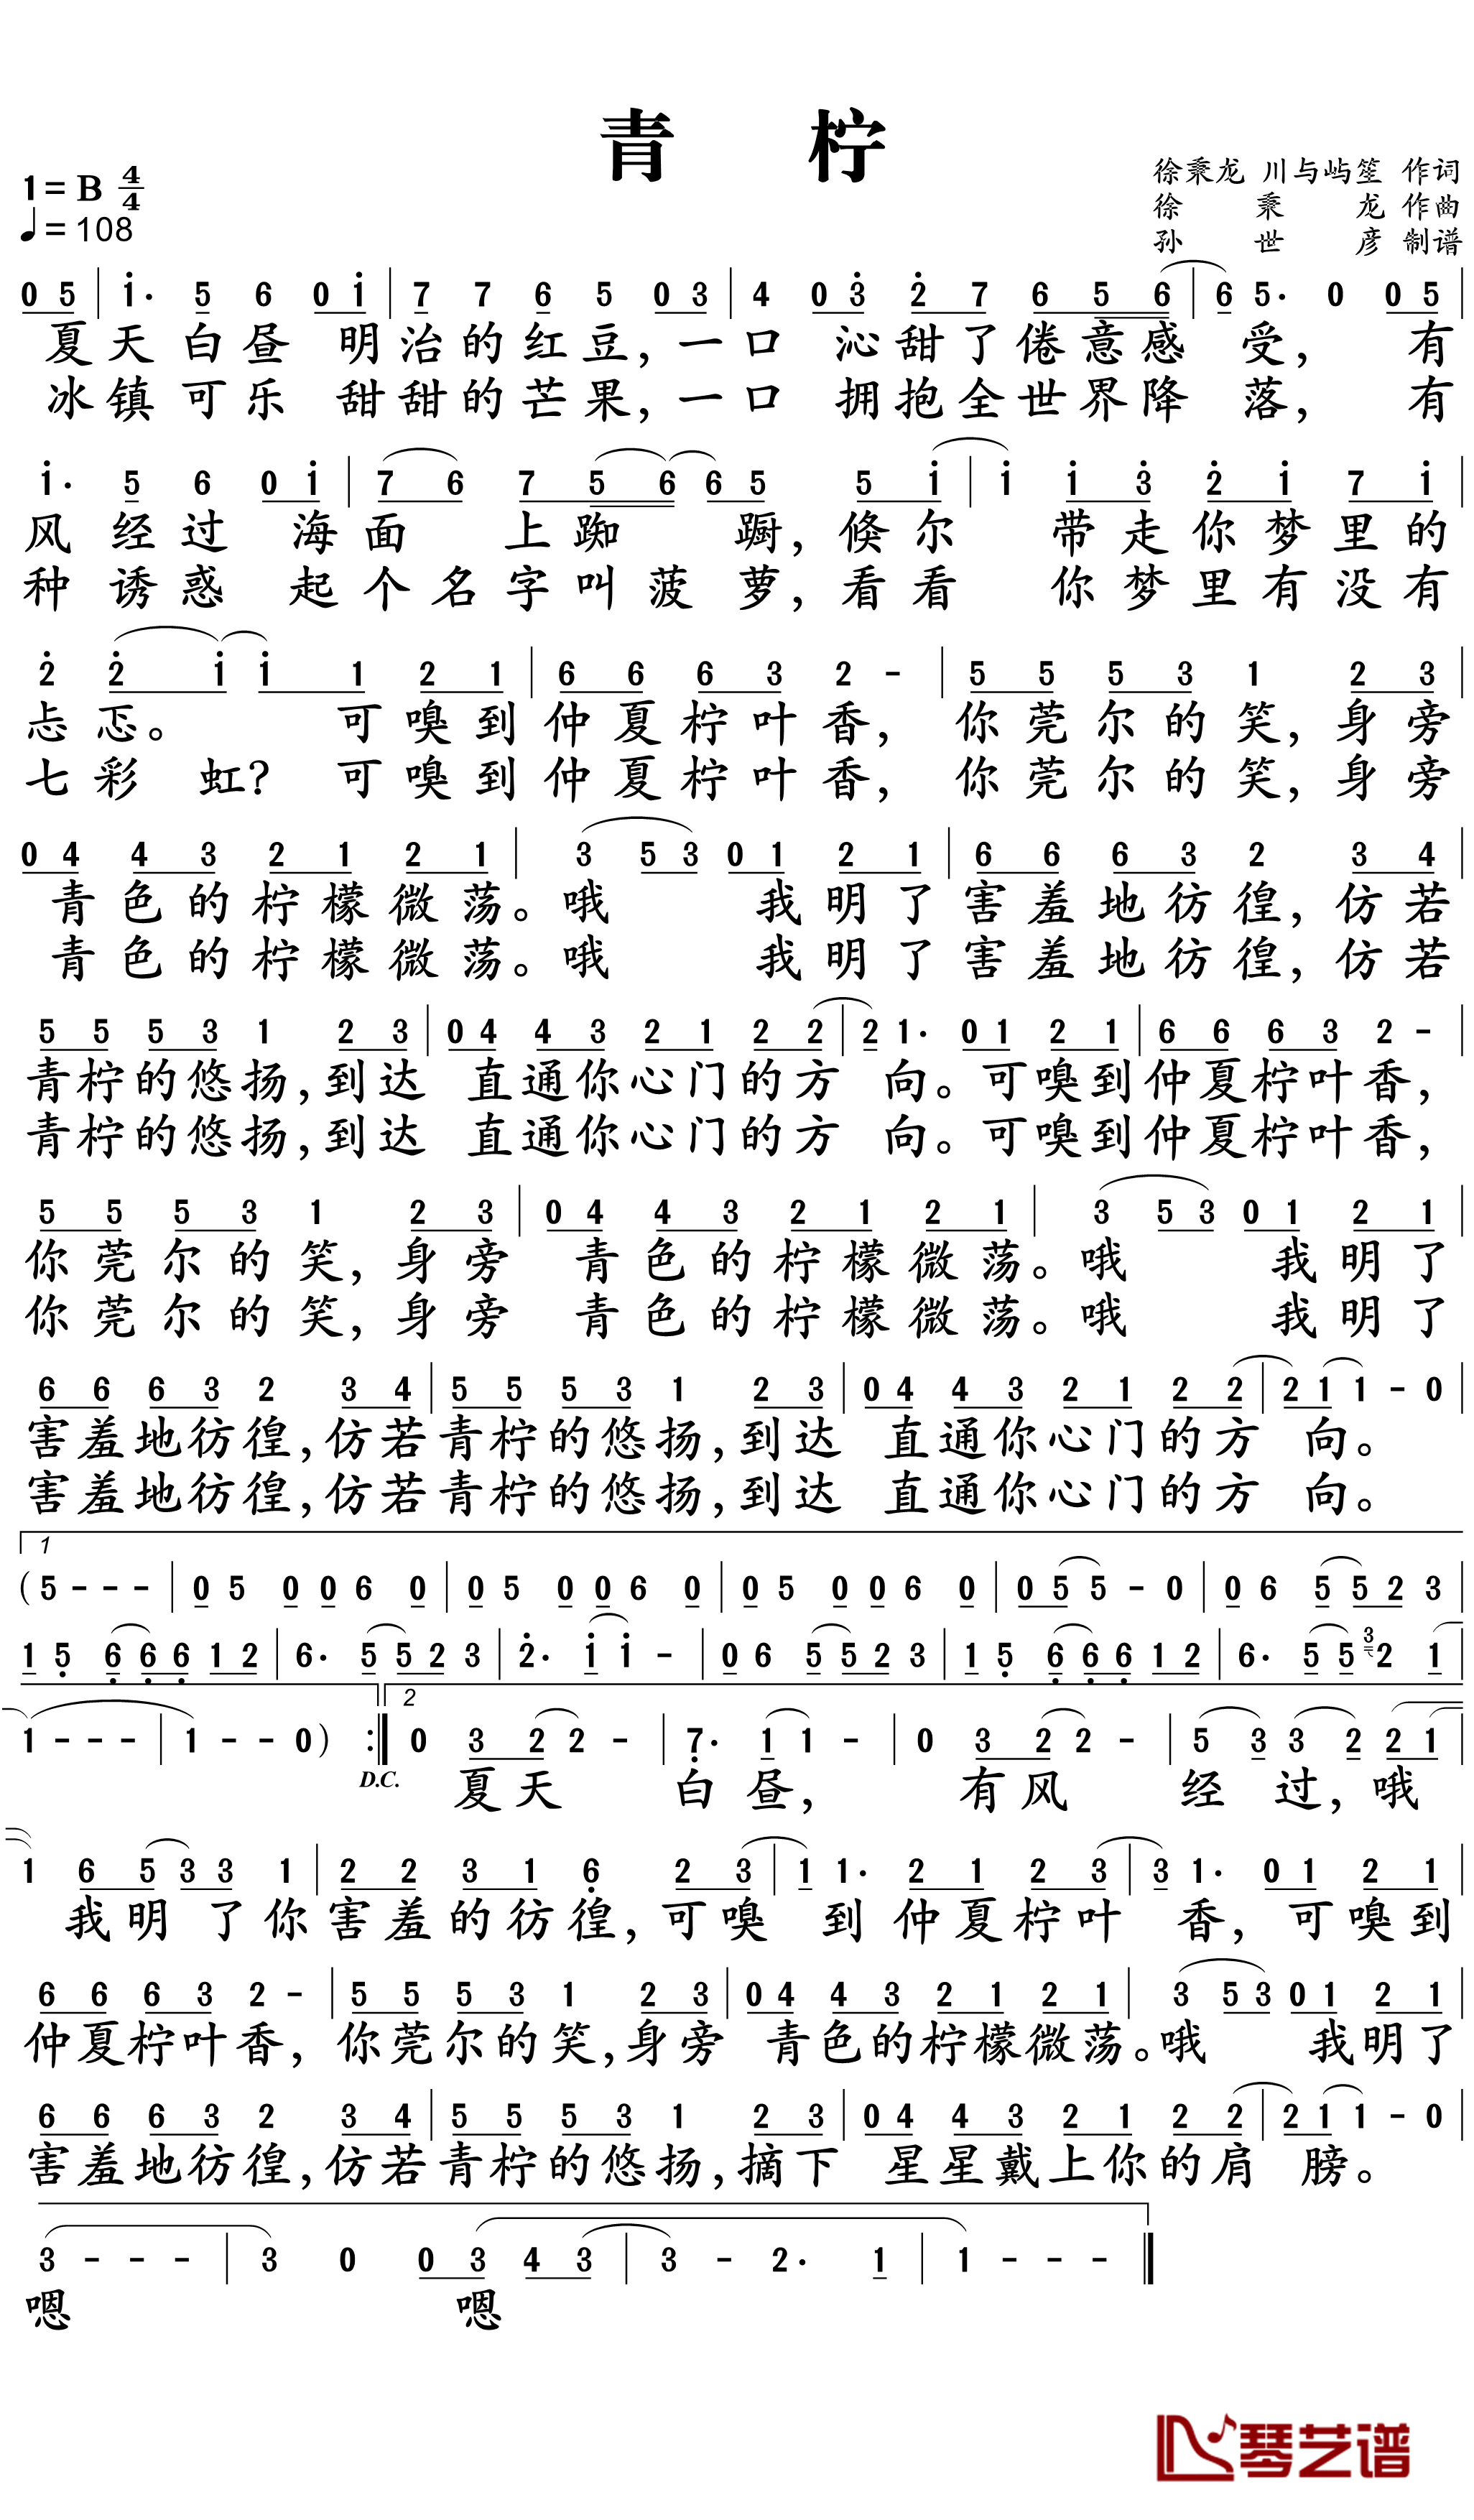 青 柠
1= B 4/4
♩= 108
徐秉龙 川与屿笙 作词
徐 秉 龙 作曲
孙 世 彦 制谱
0 5 | 1̇· 5 6 0 1̇ | 7 7 6 5 0 3 | 4 0 3̇ 2̇ 7 6 5 6 | 6 5· 0 0 5 |
夏天白昼 明治的红豆,一口 沁甜了倦意感 受, 有
冰镇可乐 甜甜的芒果,一口 拥抱全世界降 落, 有
1̇· 5 6 0 1̇ | 7 6 7 5 6 6 5 5 1̇ | 1̇ 1̇ 3̇ 2̇ 1̇ 7 1̇ |
风经过 海面 上踟 蹰,倏尔 带走你梦里的
种诱惑 起个名字叫菠 萝,看看 你梦里有没有
2̇ 2̇ 1̇ 1̇ 1 2 1 | 6 6 6 3 2 - | 5 5 5 3 1 2 3 |
忐忑。 可嗅到仲夏柠叶香, 你莞尔的笑,身旁
七彩 虹? 可嗅到仲夏柠叶香, 你莞尔的笑,身旁
0 4 4 3 2 1 2 1 | 3 5 3 0 1 2 1 | 6 6 6 3 2 3 4 |
青色的柠檬微荡。哦 我明了害羞地彷徨,仿若
青色的柠檬微荡。哦 我明了害羞地彷徨,仿若
5 5 5 3 1 2 3 | 0 4 4 3 2 1 2 2 | 2 1· 0 1 2 1 | 6 6 6 3 2 - |
青柠的悠扬,到达 直通你心门的方 向。可嗅到仲夏柠叶香,
青柠的悠扬,到达 直通你心门的方 向。可嗅到仲夏柠叶香,
5 5 5 3 1 2 3 | 0 4 4 3 2 1 2 1 | 3 5 3 0 1 2 1 |
你莞尔的笑,身旁 青色的柠檬微荡。哦 我明了
你莞尔的笑,身旁 青色的柠檬微荡。哦 我明了
6 6 6 3 2 3 4 | 5 5 5 3 1 2 3 | 0 4 4 3 2 1 2 2 | 2 1 1 - 0 |
害羞地彷徨,仿若青柠的悠扬,到达 直通你心门的方 向。
害羞地彷徨,仿若青柠的悠扬,到达 直通你心门的方 向。
1
(5 - - - | 0 5 0 0 6 0 | 0 5 0 0 6 0 | 0 5 0 0 6 0 | 0 5 5 - 0 | 0 6 5 5 2 3 |
1 5̣ 6̣ 6̣ 6̣ 1 2 | 6· 5 5 2 3 | 2̇· 1̇ 1̇ - | 0 6 5 5 2 3 | 1 5̣ 6̣ 6̣ 6̣ 1 2 | 6· 5 5 3 2 1 |
2
1 - - - | 1 - - 0) :‖ 0 3 2 2 - | 7̣· 1 1 - | 0 3 2 2 - | 5 3 3 2 2 1 |
D.C. 夏天 白昼, 有风 经过,哦
1 6 5 3 3 1 | 2 2 3 1 6̣ 2 3 | 1 1· 2 1 2 3 | 3 1· 0 1 2 1 |
我明了你害羞的彷徨,可嗅 到仲夏柠叶 香,可嗅到
6 6 6 3 2 - | 5 5 5 3 1 2 3 | 0 4 4 3 2 1 2 1 | 3 5 3 0 1 2 1 |
仲夏柠叶香, 你莞尔的笑,身旁 青色的柠檬微荡。哦 我明了
6 6 6 3 2 3 4 | 5 5 5 3 1 2 3 | 0 4 4 3 2 1 2 2 | 2 1 1 - 0 |
害羞地彷徨,仿若青柠的悠扬,摘下 星星戴上你的肩 膀。
3 - - - | 3 0 0 3 4 3 | 3 - 2· 1 | 1 - - - ‖
嗯 嗯
琴艺谱